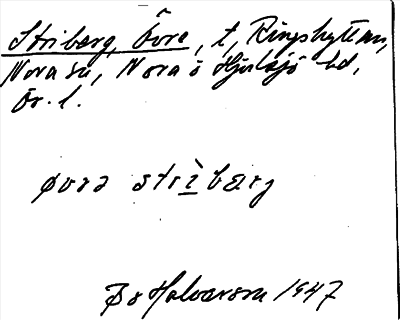 Striberg, Övre, t, Ringshyttan,
Nora sn, Nora o Hjulsjö bd,
Ör. l.
øvrə strìbærj
Bo Halvarson 1947